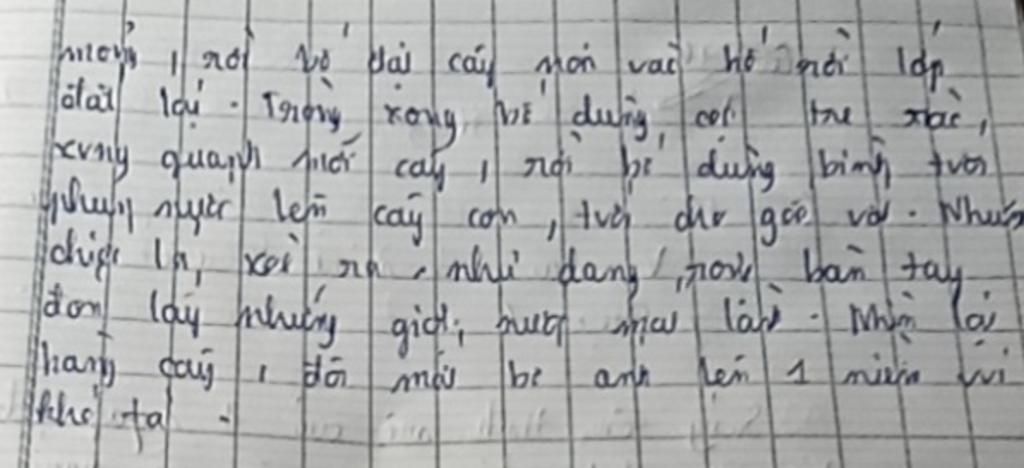 mỏng, rồi bố đặt cây non vào hố rồi lấp
đất lại. Trồng xong bố dựng cọc tre rào,
xung quanh mỗi cây, rồi bố dùng bình tưới
phun nước lên cây con, tưới cho gốc. Những
chiếc lá xoè ra, như đang bàn tay
đón lấy những giọt nước mát lành. Nhìn lại
hàng cây, đôi mắt bố ánh lên 1 niềm vui
khó tả.